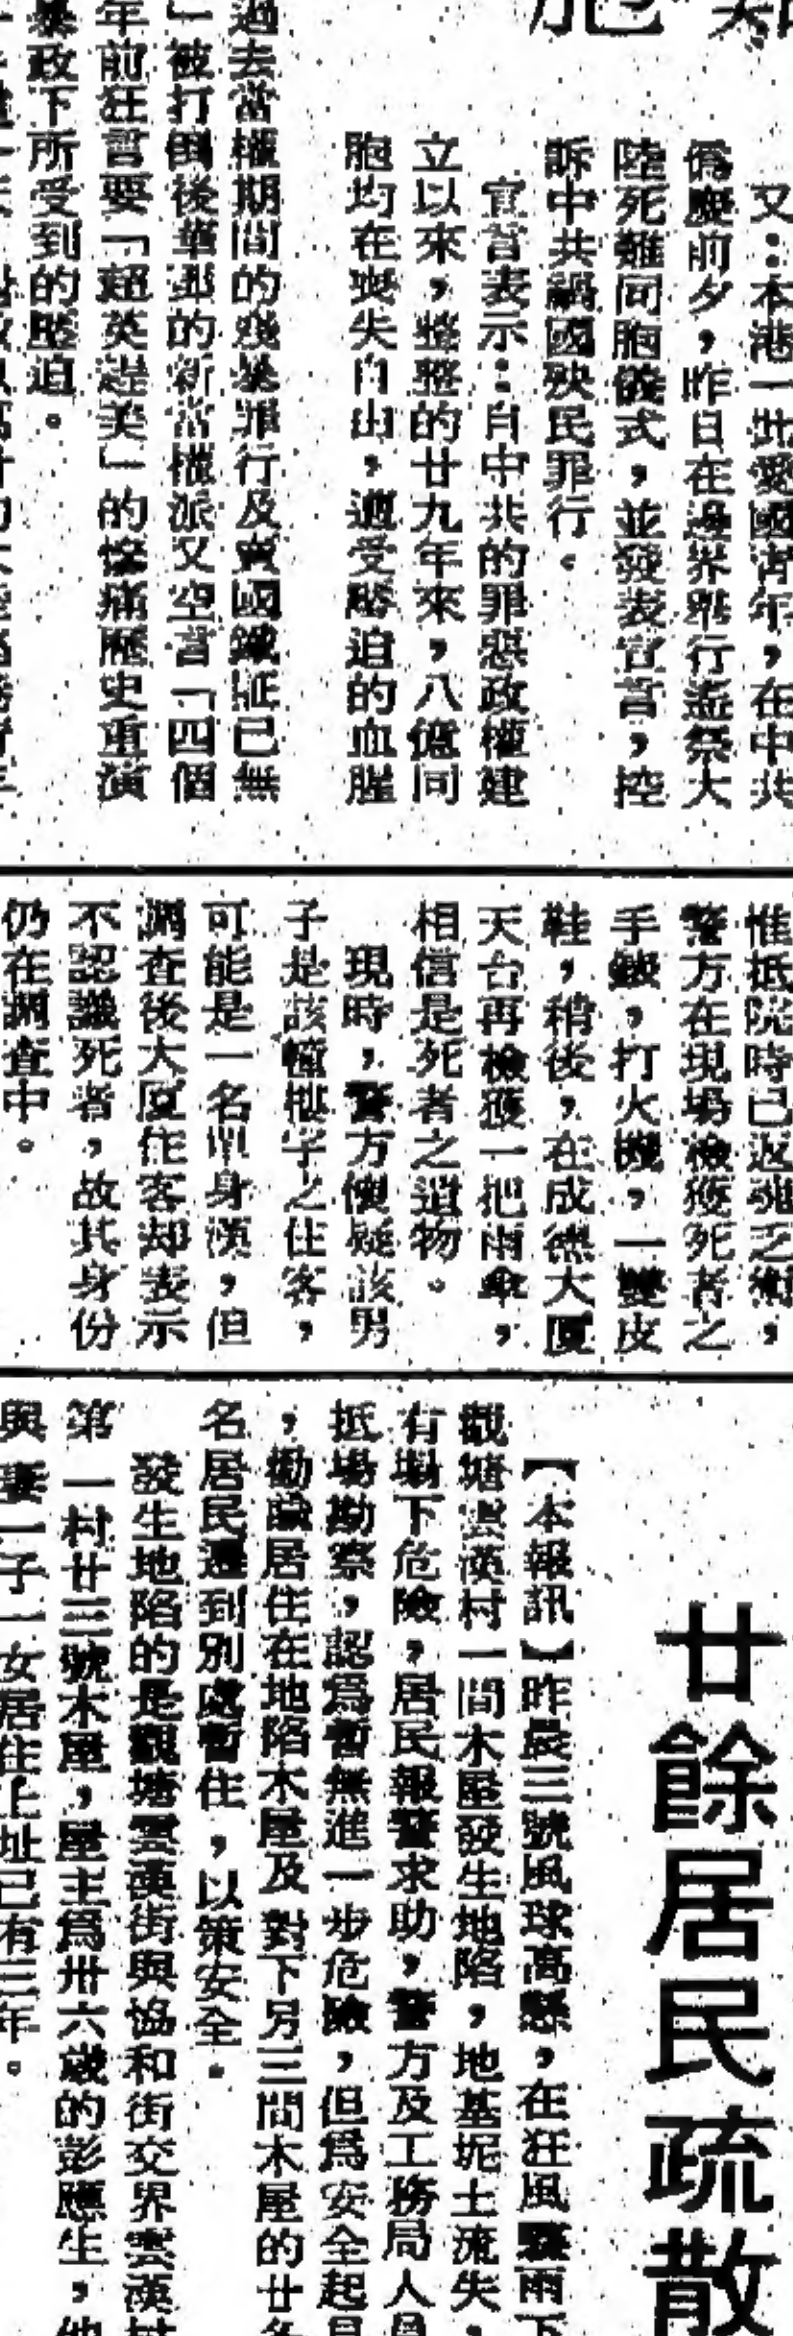 又：本港一批愛國青年，在中共
僞慶前夕，昨日在邊界舉行遙祭大
陸死難同胞儀式，並發表宣言，控
訴中共禍國殃民罪行。
宣言表示：自中共的罪惡政權建
立以來，整整的廿九年來，八億同
胞均在喪失自由，遭受壓迫的血腥
過去當權期間的殘暴罪行及賣國鐵証已無
」被打倒後華
的新當權派又空言「四個
年前狂言要「超英趕美」的慘痛歷史重演
暴政下所受到的壓迫。
惟抵院時已返魂乏術，
警方在現場檢獲死者之
手錶，打火機，一雙皮
鞋，稍後，在成德大厦
天台再檢獲一把雨傘，
相信是死者之遺物。
現時，警方懷疑該男
子是該幢樓宇之住客，
可能是一名單身漢，但
調查後大厦住客却表示
不認識死者，故其身份
仍在調查中。
廿餘居民疏散
【本報訊】昨晨三號風球高懸，在狂風驟雨下
觀塘雲漢村一間木屋發生地陷，地基坭土流失，
有塌下危險，居民報警求助，警方及工務局人員
抵場勘察，認爲暫無進一步危險，但爲安全起見
，勸諭居住在地陷木屋及對下另三間木屋的廿多
名居民遷到別處暫住，以策安全。
發生地陷的是觀塘雲漢街與協和街交界雲漢村
第一村廿三號木屋，屋主爲卅六歲的彭應生，他
與妻一子一女居住上址已有三年。